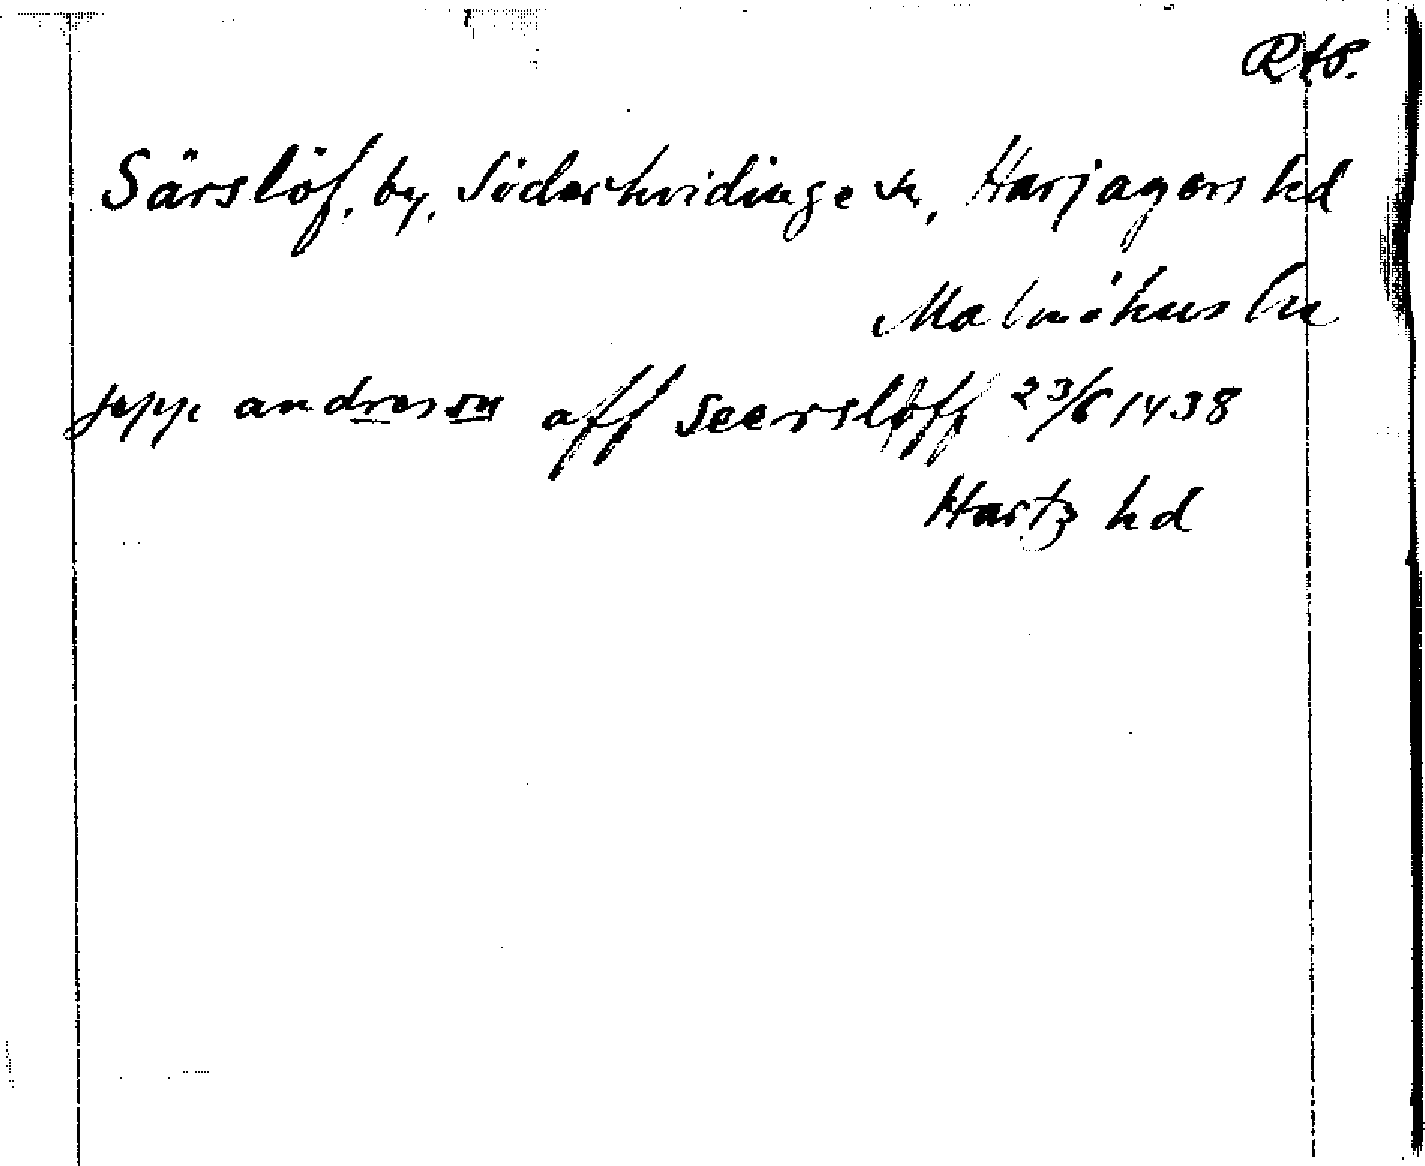 RAP.
Särslöf, by, Söderhvidinge sn, Harjagers hd
Malmöhus län
jeppe andresson aff seersløff 23/6 1438
Hartz hd